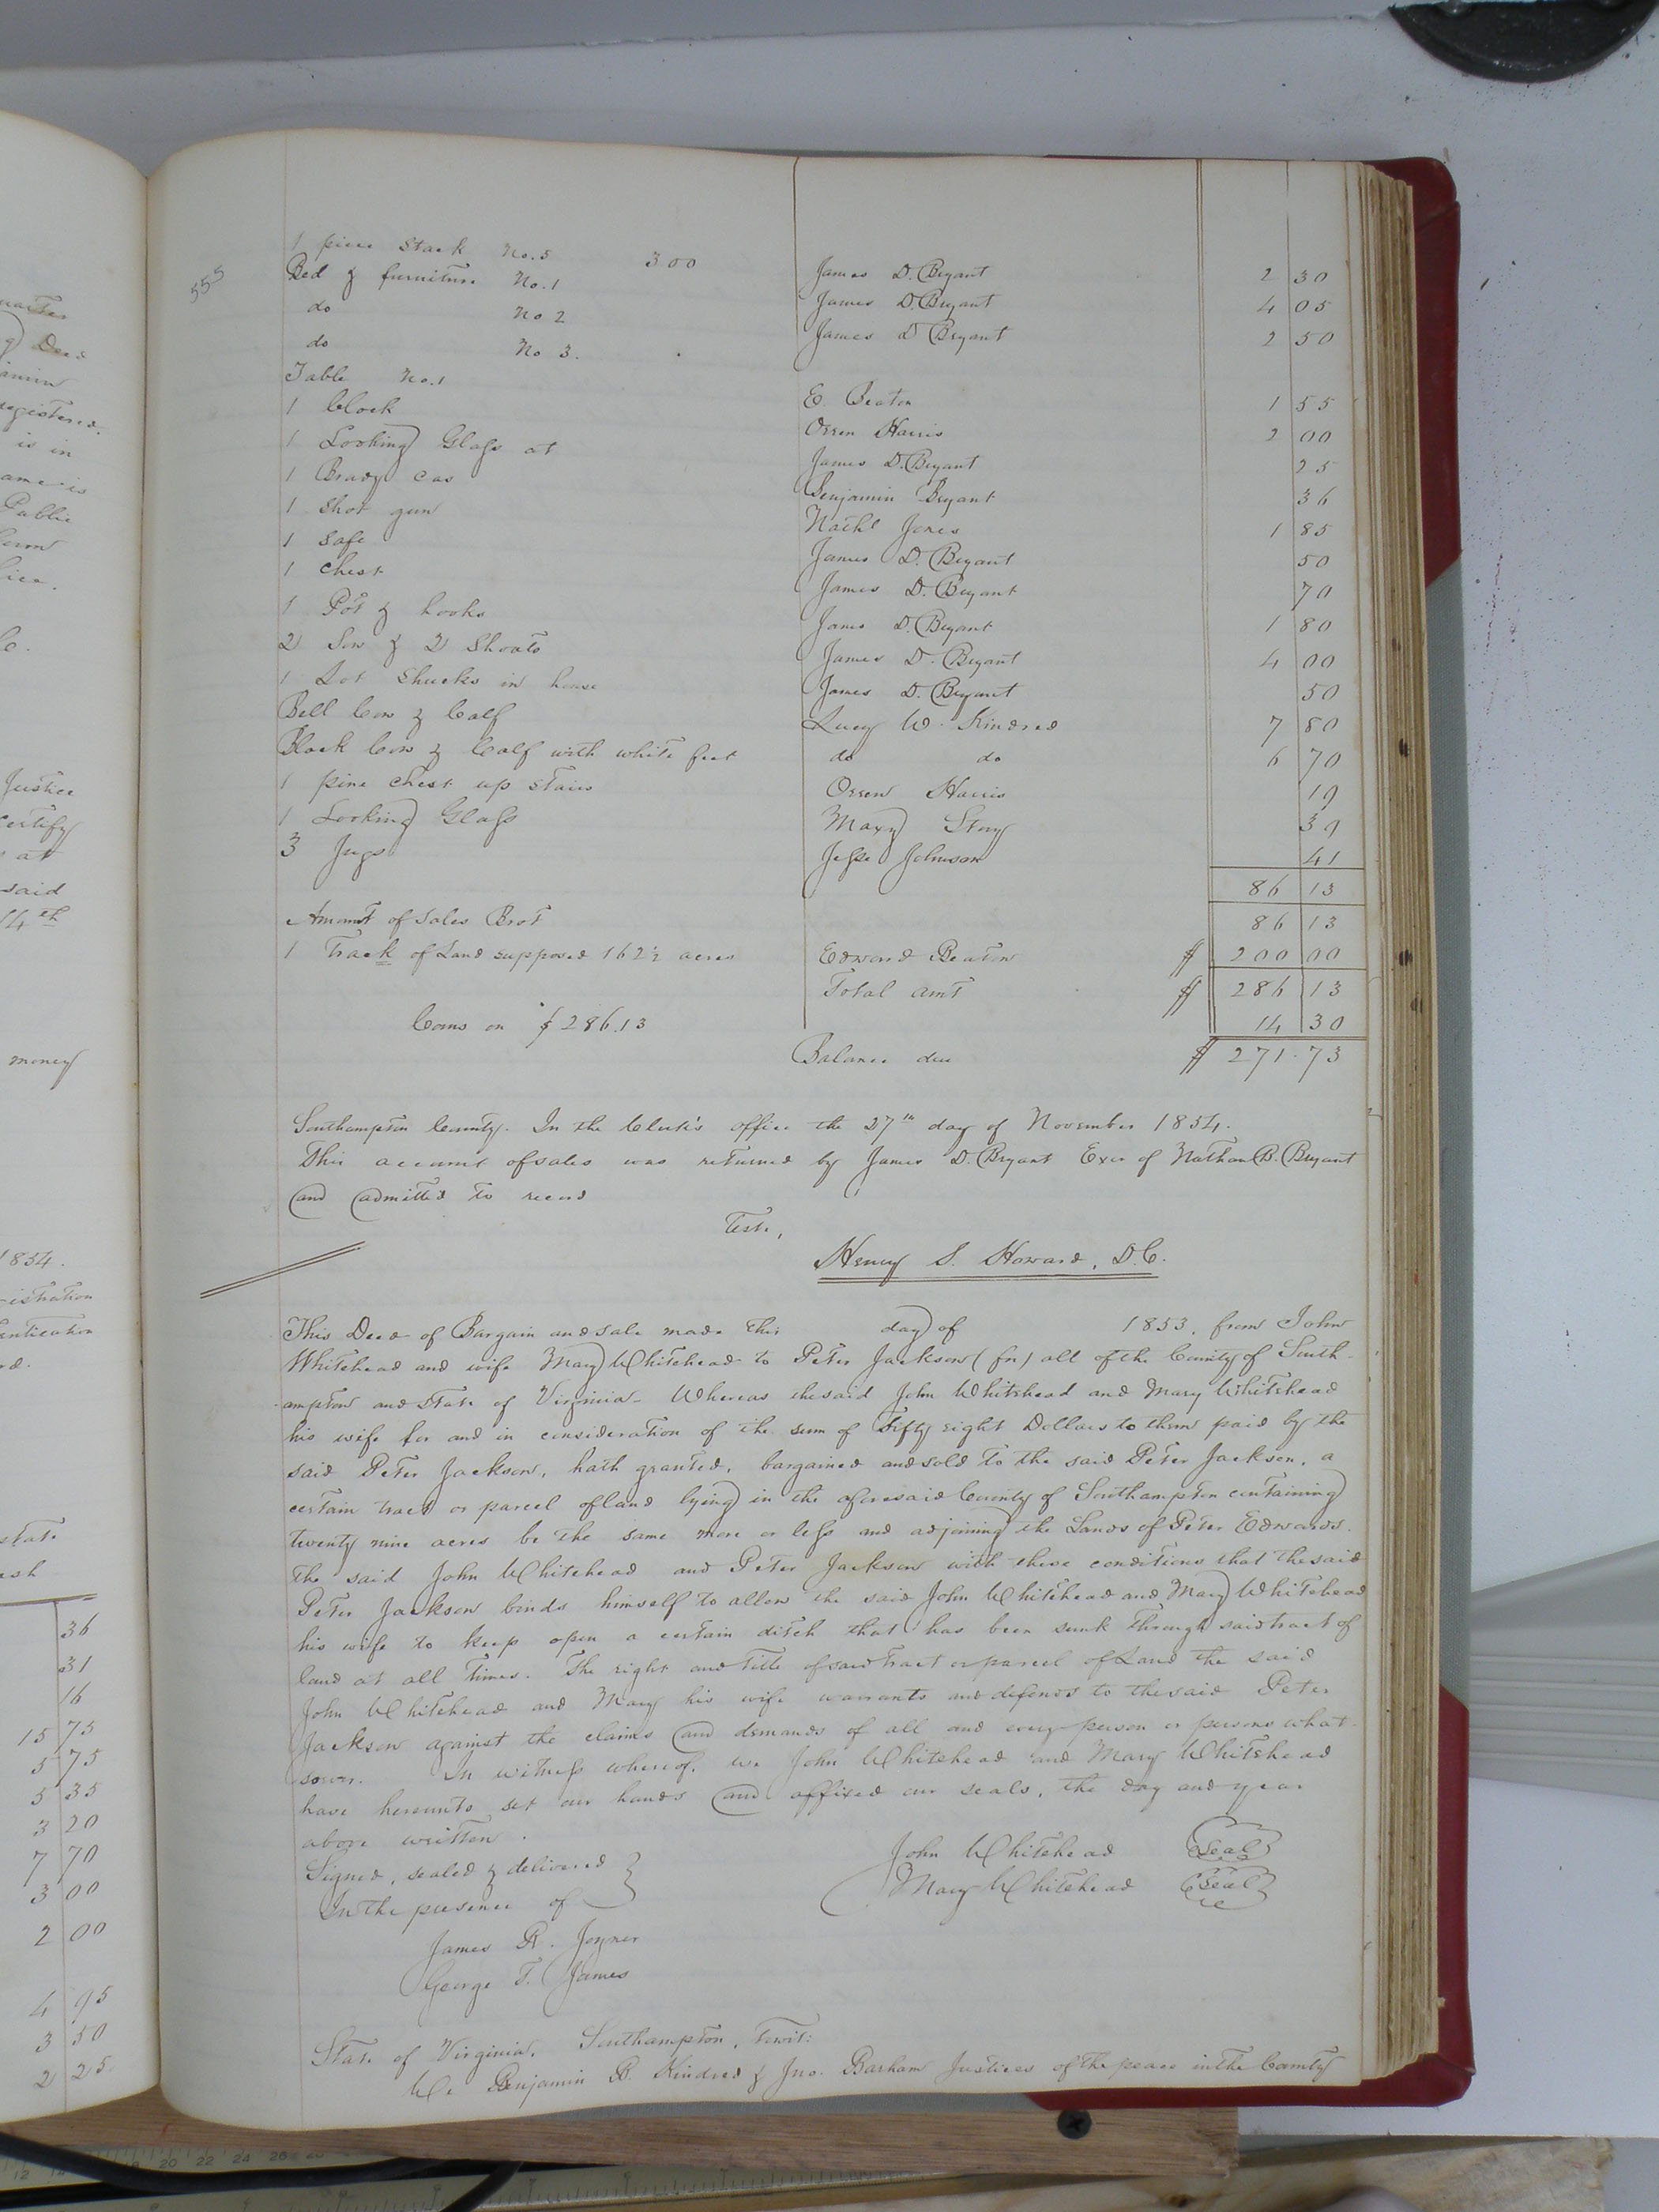 uarter
Deed
jamin
registered.
is in
ame is
Public
Justice
certify
at
said
14th
money
1854.
istration
entication
36
31
16
15 73
5 75
5 35
3 20
7 70
3 00
2 00
4 95
3 50
2 25
555
1 piece Stack No. 5 300
Bed & furniture No. 1 James D. Bryant 2 30
do No 2 James D. Bryant 4 05
do No 3. James D Bryant 2 50
Table No. 1
1 Clock E. Beaton 1 55
1 Looking Glass at Orren Harris 2 00
1 Brady Cas James D. Bryant 25
1 Shot gun Benjamin Bryant 36
1 Safe Nathl Jones 1 85
1 Chest James D. Bryant 50
1 Pot & hooks James D. Bryant 70
2 Sow & 2 Shoats James D. Bryant 1 80
1 Lot Shucks in house James D. Bryant 4 00
Bell Cow & Calf James D. Bryant 50
Black Cow & Calf with white feet Lucy W. Kindred 7 80
1 pine Chest up stairs do do 6 70
1 Looking Glass Orren Harris 19
3 Jugs Maxy Story 39
Jesse Johnson 41
86 13
Amount of Sales Brot 86 13
1 Track of Land supposed 162½ acres Edward Beaton $ 200 00
Total amt $ 286 13
Coms on $286.13 14 30
Balance due $ 271.73
Southampton County. In the Clerk's office the 27th day of November 1854.
This account of sales was returned by James D. Bryant Exer of Nathan B. Bryant
and admitted to record
Test.,
Henry S. Howard, D.C.
This Deed of Bargain and sale made this day of 1853, from John
Whitehead and wife Mary Whitehead to Peter Jackson (fn) all of the County of South-
ampton and State of Virginia- Whereas the said John Whitehead and Mary Whitehead
his wife for and in consideration of the sum of Fifty eight Dollars to them paid by the
said Peter Jackson, hath granted, bargained and sold to the said Peter Jackson, a
certain tract or parcel of land lying in the aforesaid County of Southampton containing
twenty nine acres be the same more or less and adjoining the Lands of Peter Edwards.
The said John Whitehead and Peter Jackson with these conditions that the said
Peter Jackson binds himself to allow the said John Whitehead and Mary Whitehead
his wife to keep open a certain ditch that has been sunk through said tract of
land at all times. The right and title of said tract or parcel of Land the said
John Whitehead and Mary his wife warrants and defends to the said Peter
Jackson against the claims and demands of all and every person or persons what-
soever. In witness whereof, we John Whitehead and Mary Whitehead
have hereunto set our hands and affixed our seals, the day and year
above written.
Signed, sealed & delivered } John Whitehead Seal
In the presence of Mary Whitehead Seal
James R. Joyner
George T. James
State of Virginia, Southampton, towit:
We Benjamin B. Kindred & Jno. Barham Justices of the peace in the County